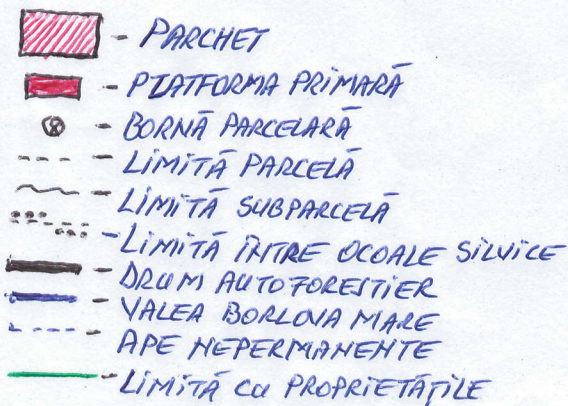 - PARCHET
- PLATFORMA PRIMARĂ
- BORNĂ PARCELARĂ
- LIMITĂ PARCELĂ
- LIMITĂ SUBPARCELĂ
- LIMITĂ ÎNTRE OCOALE SILVICE
- DRUM AUTOFORESTIER
- VALEA BORLOVA MARE
- APE NEPERMANENTE
- LIMITĂ CU PROPRIETĂȚILE